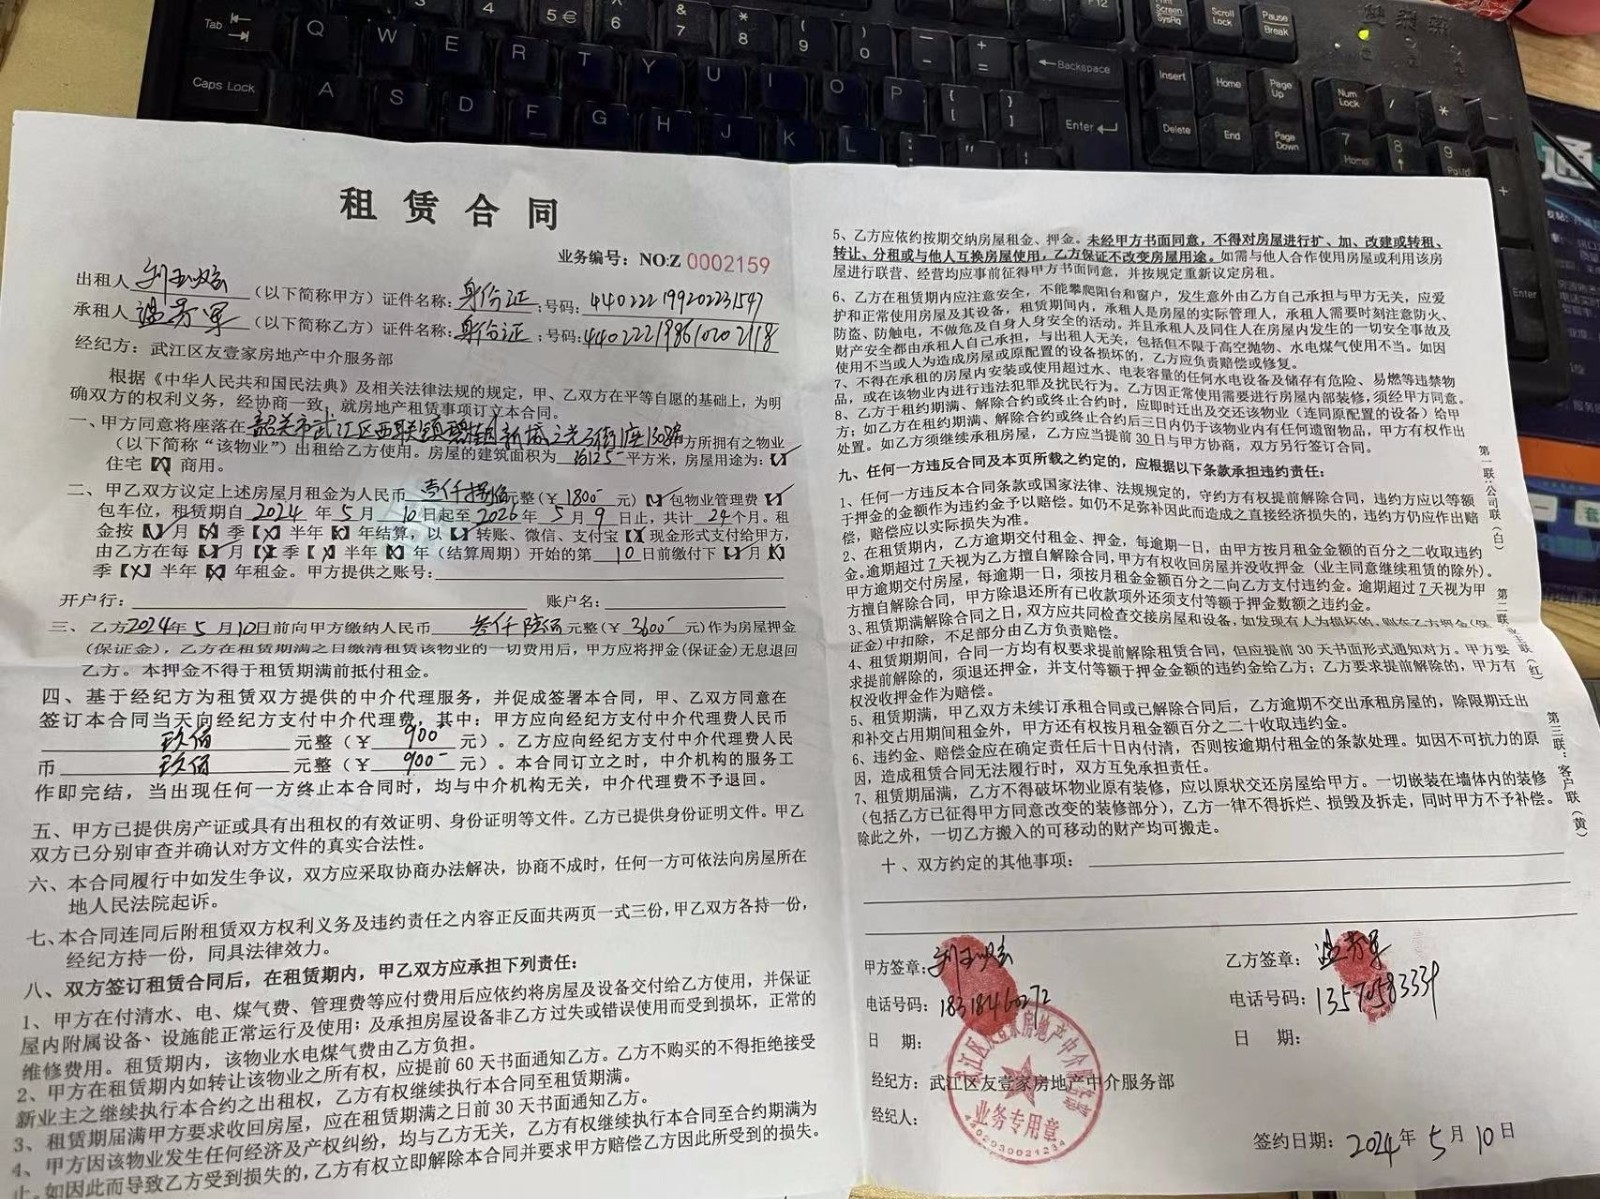 租赁合同
业务编号：NO:Z 0002159
出租人（以下简称甲方）证件名称：身份证：号码：440222199202231547
承租人（以下简称乙方）证件名称：身份证：号码：440222198610202118
经纪方：武江区友壹家房地产中介服务部
根据《中华人民共和国民法典》及相关法律法规的规定，甲、乙双方在平等自愿的基础上，为明
确双方的权利义务，经协商一致，就房地产租赁事项订立本合同。
一、甲方同意将座落在韶关市武江区西联镇碧桂园新城之光三街1座1308房方所拥有之物业
（以下简称“该物业”）出租给乙方使用。房屋的建筑面积为 平方米，房屋用途为：【✓】
住宅【X】商用。
二、甲乙双方议定上述房屋月租金为人民币壹仟捌佰元整（¥1800-元）【✓】包物业管理费【✓】
包车位，租赁期自2024年5月10日起至2026年5月9日止，共计24个月。租
金按【✓】月【X】季【X】半年【X】年结算，以【✓】转账、微信、支付宝【X】现金形式支付给甲方，
由乙方在每【✓】月【X】季【X】半年【X】年（结算周期）开始的第10日前缴付下【✓】月【X】
季【X】半年【X】年租金。甲方提供之账号：
开户行： 账户名：
三、乙方2024年5月10日前向甲方缴纳人民币叁仟陆佰元整（¥3600-元)作为房屋押金
(保证金)，乙方在租赁期满之日缴清租赁该物业的一切费用后，甲方应将押金(保证金)无息退回
乙方。本押金不得于租赁期满前抵付租金。
四、基于经纪方为租赁双方提供的中介代理服务，并促成签署本合同，甲、乙双方同意在
签订本合同当天向经纪方支付中介代理费，其中：甲方应向经纪方支付中介代理费人民币
玖佰元整（¥900-元）。乙方应向经纪方支付中介代理费人民
币玖佰元整（¥900-元）。本合同订立之时，中介机构的服务工
作即完结，当出现任何一方终止本合同时，均与中介机构无关，中介代理费不予退回。
五、甲方已提供房产证或具有出租权的有效证明、身份证明等文件。乙方已提供身份证明文件。甲乙
双方已分别审查并确认对方文件的真实合法性。
六、本合同履行中如发生争议，双方应采取协商办法解决，协商不成时，任何一方可依法向房屋所在
地人民法院起诉。
七、本合同连同后附租赁双方权利义务及违约责任之内容正反面共两页一式三份，甲乙双方各持一份，
经纪方持一份，同具法律效力。
八、双方签订租赁合同后，在租赁期内，甲乙双方应承担下列责任：
1、甲方在付清水、电、煤气费、管理费等应付费用后应依约将房屋及设备交付给乙方使用，并保证
屋内附属设备、设施能正常运行及使用；及承担房屋设备非乙方过失或错误使用而受到损坏，正常的
维修费用。租赁期内，该物业水电煤气费由乙方负担。
2、甲方在租赁期内如转让该物业之所有权，应提前60天书面通知乙方。乙方不购买的不得拒绝接受
新业主之继续执行本合约之出租权，乙方有权继续执行本合同至租赁期满。
3、租赁期届满甲方要求收回房屋，应在租赁期满之日前30天书面通知乙方。
4、甲方因该物业发生任何经济及产权纠纷，均与乙方无关，乙方有权继续执行本合同至合约期满为
止。如因此而导致乙方受到损失的，乙方有权立即解除本合同并要求甲方赔偿乙方因此所受到的损失。
5、乙方应依约按期交纳房屋租金、押金。未经甲方书面同意，不得对房屋进行扩、加、改建或转租、
转让、分租或与他人互换房屋使用，乙方保证不改变房屋用途。如需与他人合作使用房屋或利用该房
屋进行联营、经营均应事前征得甲方书面同意，并按规定重新议定房租。
6、乙方在租赁期内应注意安全，不能攀爬阳台和窗户，发生意外由乙方自己承担与甲方无关，应爱
护和正常使用房屋及其设备，租赁期间内，承租人是房屋的实际管理人，承租人需要时刻注意防火、
防盗、防触电，不做危及自身人身安全的活动。并且承租人及同住人在房屋内发生的一切安全事故及
财产安全都由承租人自己承担，与出租人无关，包括但不限于高空抛物、水电煤气使用不当。如因
使用不当或人为造成房屋或原配置的设备损坏的，乙方应负责赔偿或修复。
7、不得在承租的房屋内安装或使用超过水、电表容量的任何水电设备及储存有危险、易燃等违禁物
品，或在该物业内进行违法犯罪及扰民行为。乙方因正常使用需要进行房屋内部装修，须经甲方同意。
8、乙方于租约期满、解除合约或终止合约时，应即时迁出及交还该物业（连同原配置的设备）给甲
方；如乙方在租约期满、解除合约或终止合约后三日内仍于该物业内有任何遗留物品，甲方有权作出
处置。如乙方须继续承租房屋，乙方应当提前30日与甲方协商，双方另行签订合同。
九、任何一方违反合同及本页所载之约定的，应根据以下条款承担违约责任：
1、任何一方违反本合同条款或国家法律、法规规定的，守约方有权提前解除合同，违约方应以等额
于押金的金额作为违约金予以赔偿。如仍不足弥补因此而造成之直接经济损失的，违约方仍应作出赔
偿，赔偿应以实际损失为准。
2、在租赁期内，乙方逾期交付租金、押金，每逾期一日，由甲方按月租金金额的百分之二收取违约
金。逾期超过7天视为乙方擅自解除合同，甲方有权收回房屋并没收押金（业主同意继续租赁的除外）。
甲方逾期交付房屋，每逾期一日，须按月租金金额百分之二向乙方支付违约金。逾期超过7天视为甲
方擅自解除合同，甲方除退还所有已收款项外还须支付等额于押金数额之违约金。
3、租赁期满解除合同之日，双方应共同检查交接房屋和设备，如发现有人为损坏的，则在乙方押金(保
证金)中扣除，不足部分由乙方负责赔偿。
4、租赁期期间，合同一方均有权要求提前解除租赁合同，但应提前30天书面形式通知对方。甲方要
求提前解除的，须退还押金，并支付等额于押金金额的违约金给乙方；乙方要求提前解除的，甲方有
权没收押金作为赔偿。
5、租赁期满，甲乙双方未续订承租合同或已解除合同后，乙方逾期不交出承租房屋的，除限期迁出
和补交占用期间租金外，甲方还有权按月租金额百分之二十收取违约金。
6、违约金、赔偿金应在确定责任后十日内付清，否则按逾期付租金的条款处理。如因不可抗力的原
因，造成租赁合同无法履行时，双方互免承担责任。
7、租赁期届满，乙方不得破坏物业原有装修，应以原状交还房屋给甲方。一切嵌装在墙体内的装修
(包括乙方已征得甲方同意改变的装修部分），乙方一律不得拆烂、损毁及拆走，同时甲方不予补偿。
除此之外，一切乙方搬入的可移动的财产均可搬走。
十、双方约定的其他事项：
甲方签章： 乙方签章：
电话号码：18318460272 电话号码：13570583339
日 期： 日 期：
经纪方：武江区友壹家房地产中介服务部
经纪人：
签约日期：2024年5月10日
武江区友壹家房地产中介服务部
业务专用章
第一联：公司联（白）
第二联：业主联（红）
第三联：客户联（黄）